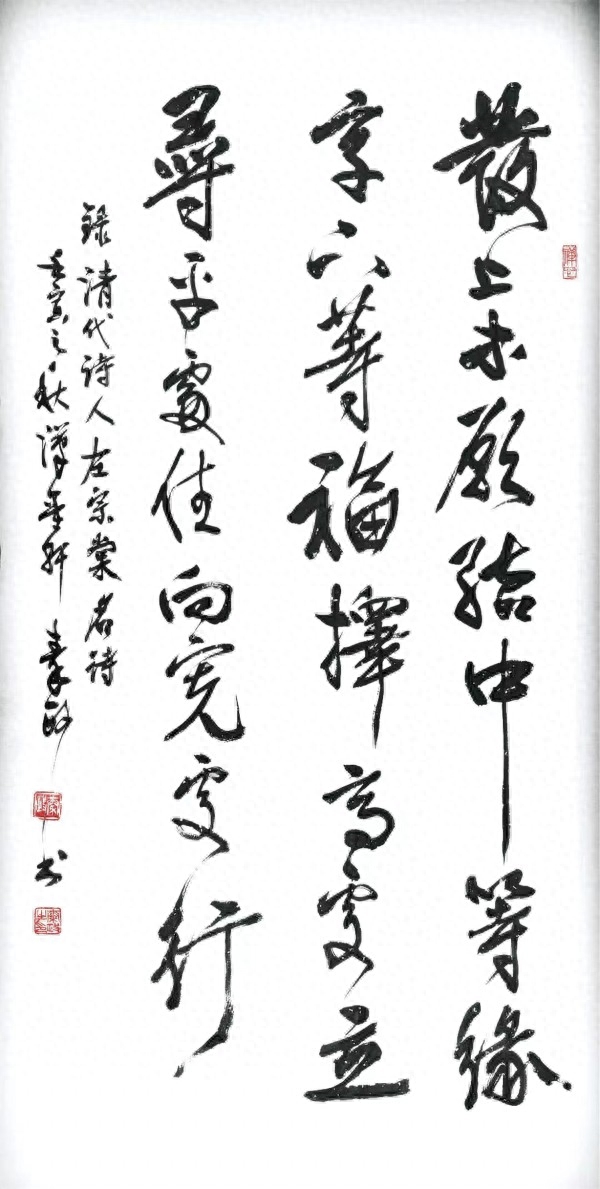 發上等願結中等緣
享下等福擇高處立
尋平處住向寬處行
録清代诗人左宗棠名诗
壬寅之秋墨軒书